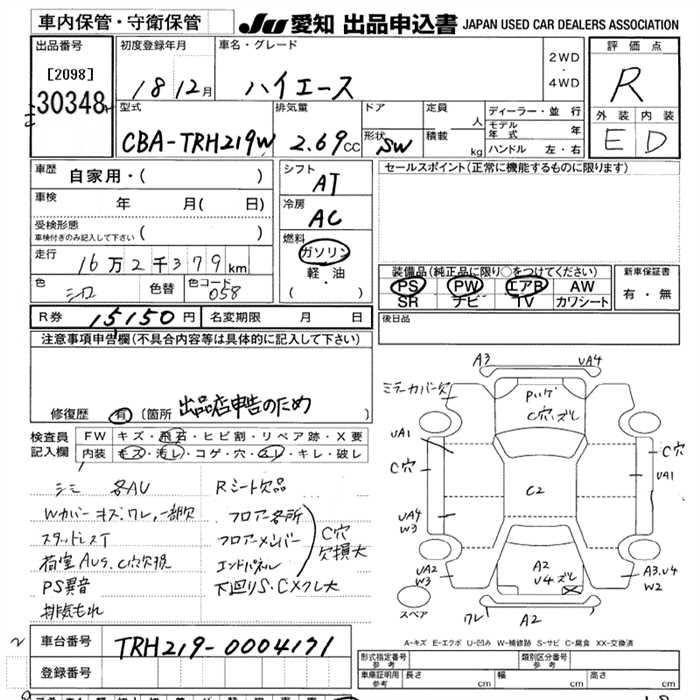 車内保管・守衛保管
JU 愛知 出品申込書 JAPAN USED CAR DEALERS ASSOCIATION
出品番号
[2098]
30348
初度登録年月
18 12月
車名・グレード
ハイエース
2WD
・
4WD
評価点
R
外装 内装
E D
型式
CBA-TRH219W
排気量
2.69cc
ドア
形状
SW
定員
人
積載
kg
ディーラー・並行
モデル年式 年
ハンドル 左・右
車歴
自家用・( )
車検
年 月( 日)
受検形態
車検付きのみ記入して下さい ( )
走行
16万2千379km
色
シロ
色替
色コード
058
シフト
AT
冷房
AC
燃料
ガソリン
軽・油
( ・ )
セールスポイント(正常に機能するものに限ります)
装備品(純正品に限り○をつけてください)
PS PW エアB AW
SR ナビ TV カワシート
新車保証書
有・無
R券 15150円 名変期限 月 日
後日品
注意事項申告欄(不具合内容等は具体的に記入して下さい)
修復歴 有 (箇所 出品店申告のため )
検査員
記入欄
FW キズ・飛石・ヒビ割・リペア跡・X要
内装 キズ・汚レ・コゲ・穴・スレ・キレ・破レ
シミ 各AU Rシート欠品
Wカバー キズ、ワレ、一部欠 フロアー各所
スタッドレスT フロアーメンバー
荷室AU9、C穴欠損 エンドパネル
C穴
欠損大
PS異音 下廻りS・CXクレ大
排気もれ
A3 UA4
ミラーカバー欠
C穴、ズレ
UA1
C穴
C穴
UA1
C2
UA4
W3
UA2
W3
A2
U4ズレ
A3.U4
W2
スペア
ワレ A2
A-キズ E-エクボ U-凹み W-補修跡 S-サビ C-腐食 XX-交換済
車台番号 TRH219-0004171
登録番号
形式指定番号
参考
類別区分番号
参考
車庫証明用
参考
長さ cm 幅 cm 高さ cm